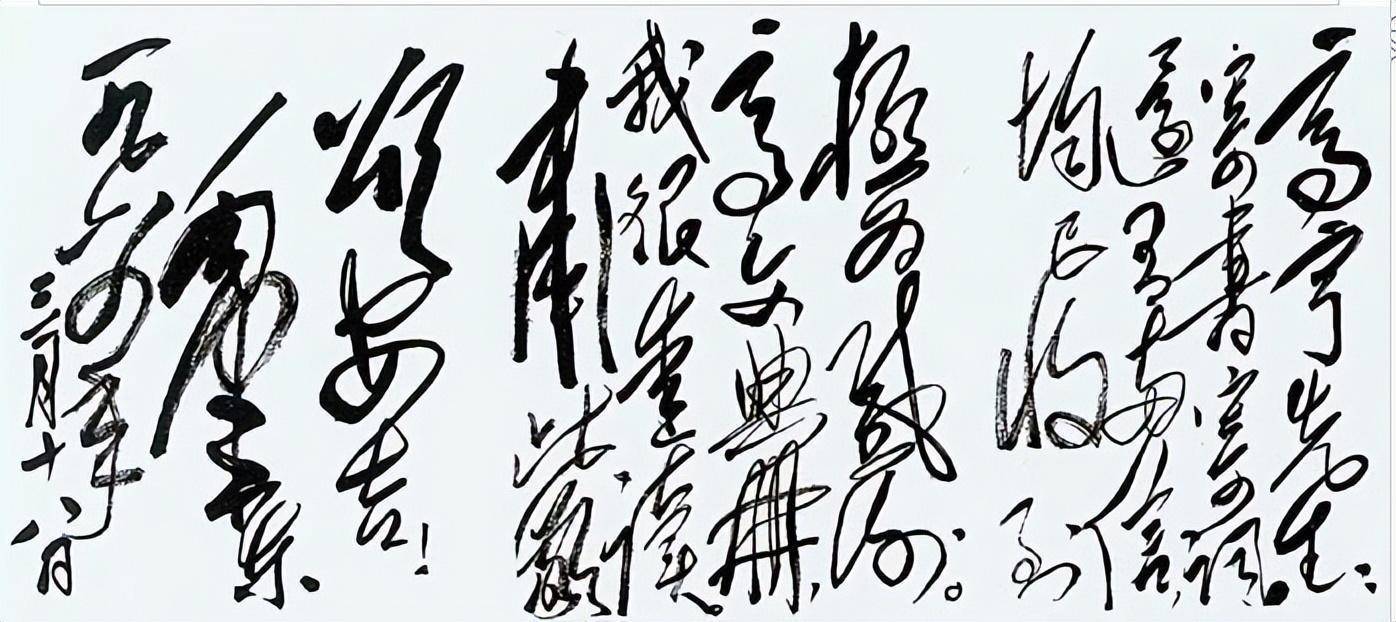 高亨先生：
寄书寄词，
还有两信，
均已收到，
极为感谢。
高文典册，
我很爱读。
肃此敬
颂安吉！
毛泽东
一九六四年
三月十八日